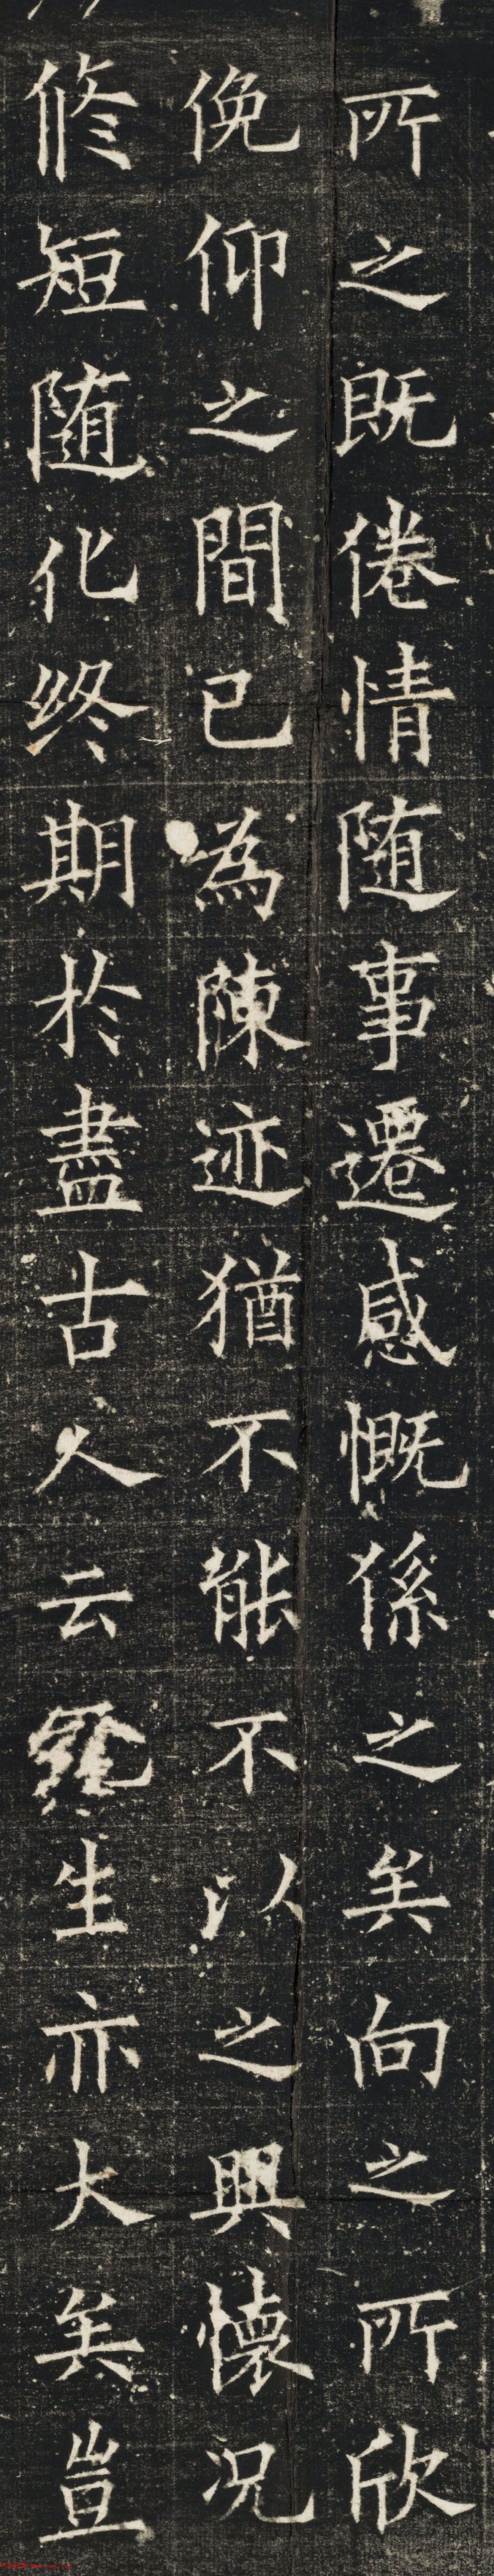 所之既倦情随事遷感慨係之矣向之所欣
俛仰之間已為陳迹猶不能不以之興懷况
修短随化终期於盡古人云死生亦大矣豈